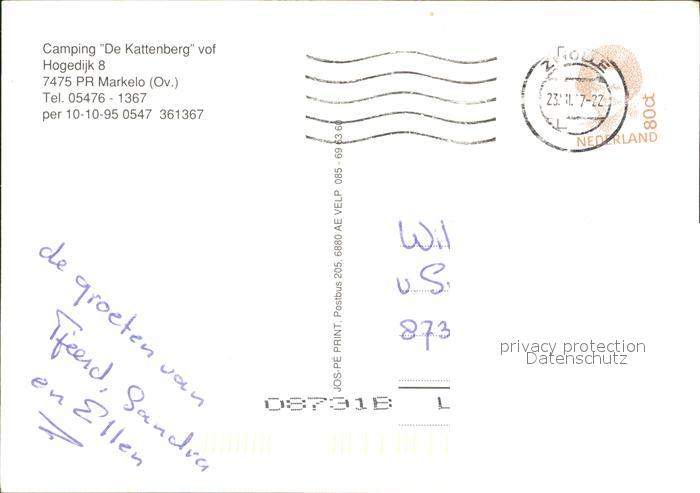 Camping "De Kattenberg" vof
Hogedijk 8
7475 PR Markelo (Ov.)
Tel. 05476 - 1367
per 10-10-95 0547 361367
ZWOLLE
NEDERLAND
80ct
JOS-PE PRINT, Postbus 205, 6880 AE VELP 085 - 69 63 60
de groeten van
Tjeerd, Sandra
en Ellen
Wil
v S
873
privacy protection
Datenschutz
D8731B L